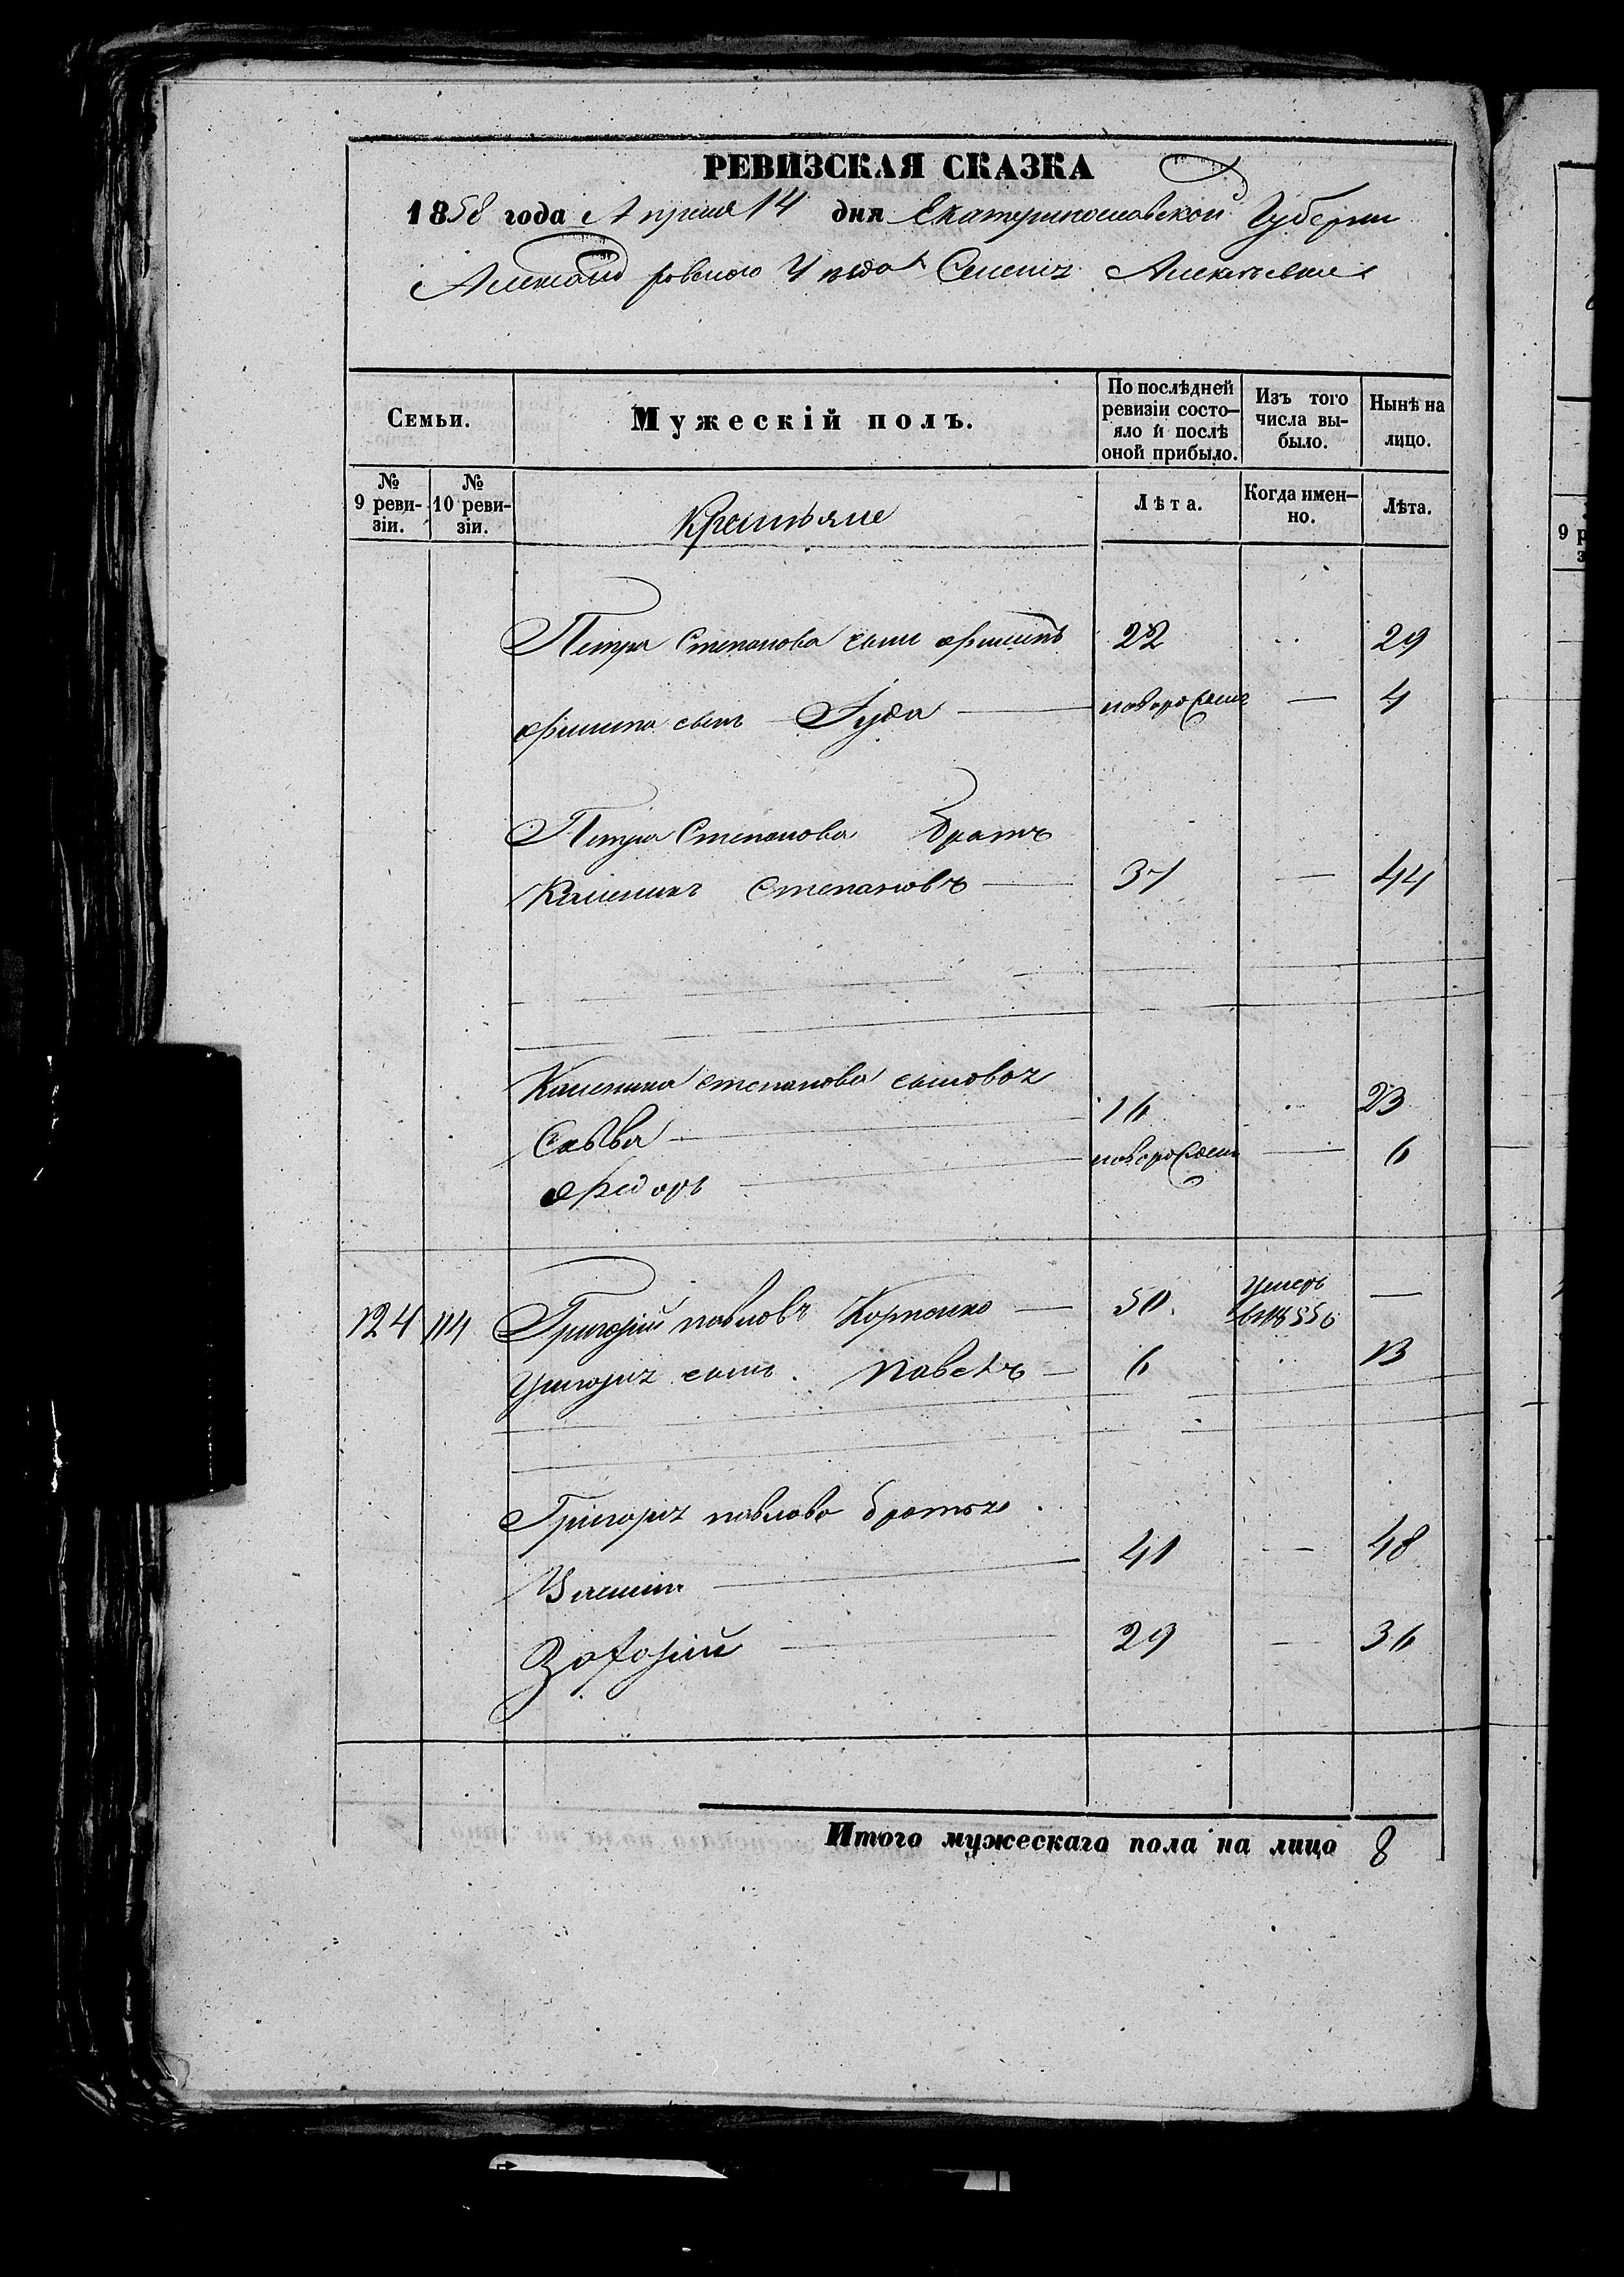 РЕВИЗСКАЯ СКАЗКА
1858 года Апреля 14 дня Екатеринославской Губернии
Александровского Уезда Селения Алексеевки
Семьи.
Мужескій полъ.
По послѣдней ревизіи состо-
яло и послѣ
оной прибыло.
Изъ того
числа вы-
было.
Нынѣ на
лицо.
№
9 реви-
зіи.
№
10 реви-
зіи.
Крестьяне
Лѣта.
Когда имен-
но.
Лѣта.
Петра Степанова сынъ Филипъ 22 29
Филипа сынъ Іуда новорожденъ 4
Петра Степанова братъ
Калиникъ Степановъ 37 44
Калиника Степанова сыновья
Савва 16 23
Федоръ новорожденъ 6
124 114 Григорій Павловъ Корненко 50 умеръ
в 1855
Григорія сынъ Павелъ 6 13
Григорія Павлова братья
41 48
Захарій 29 36
Итого мужескаго пола на лицо 8
9 р
з